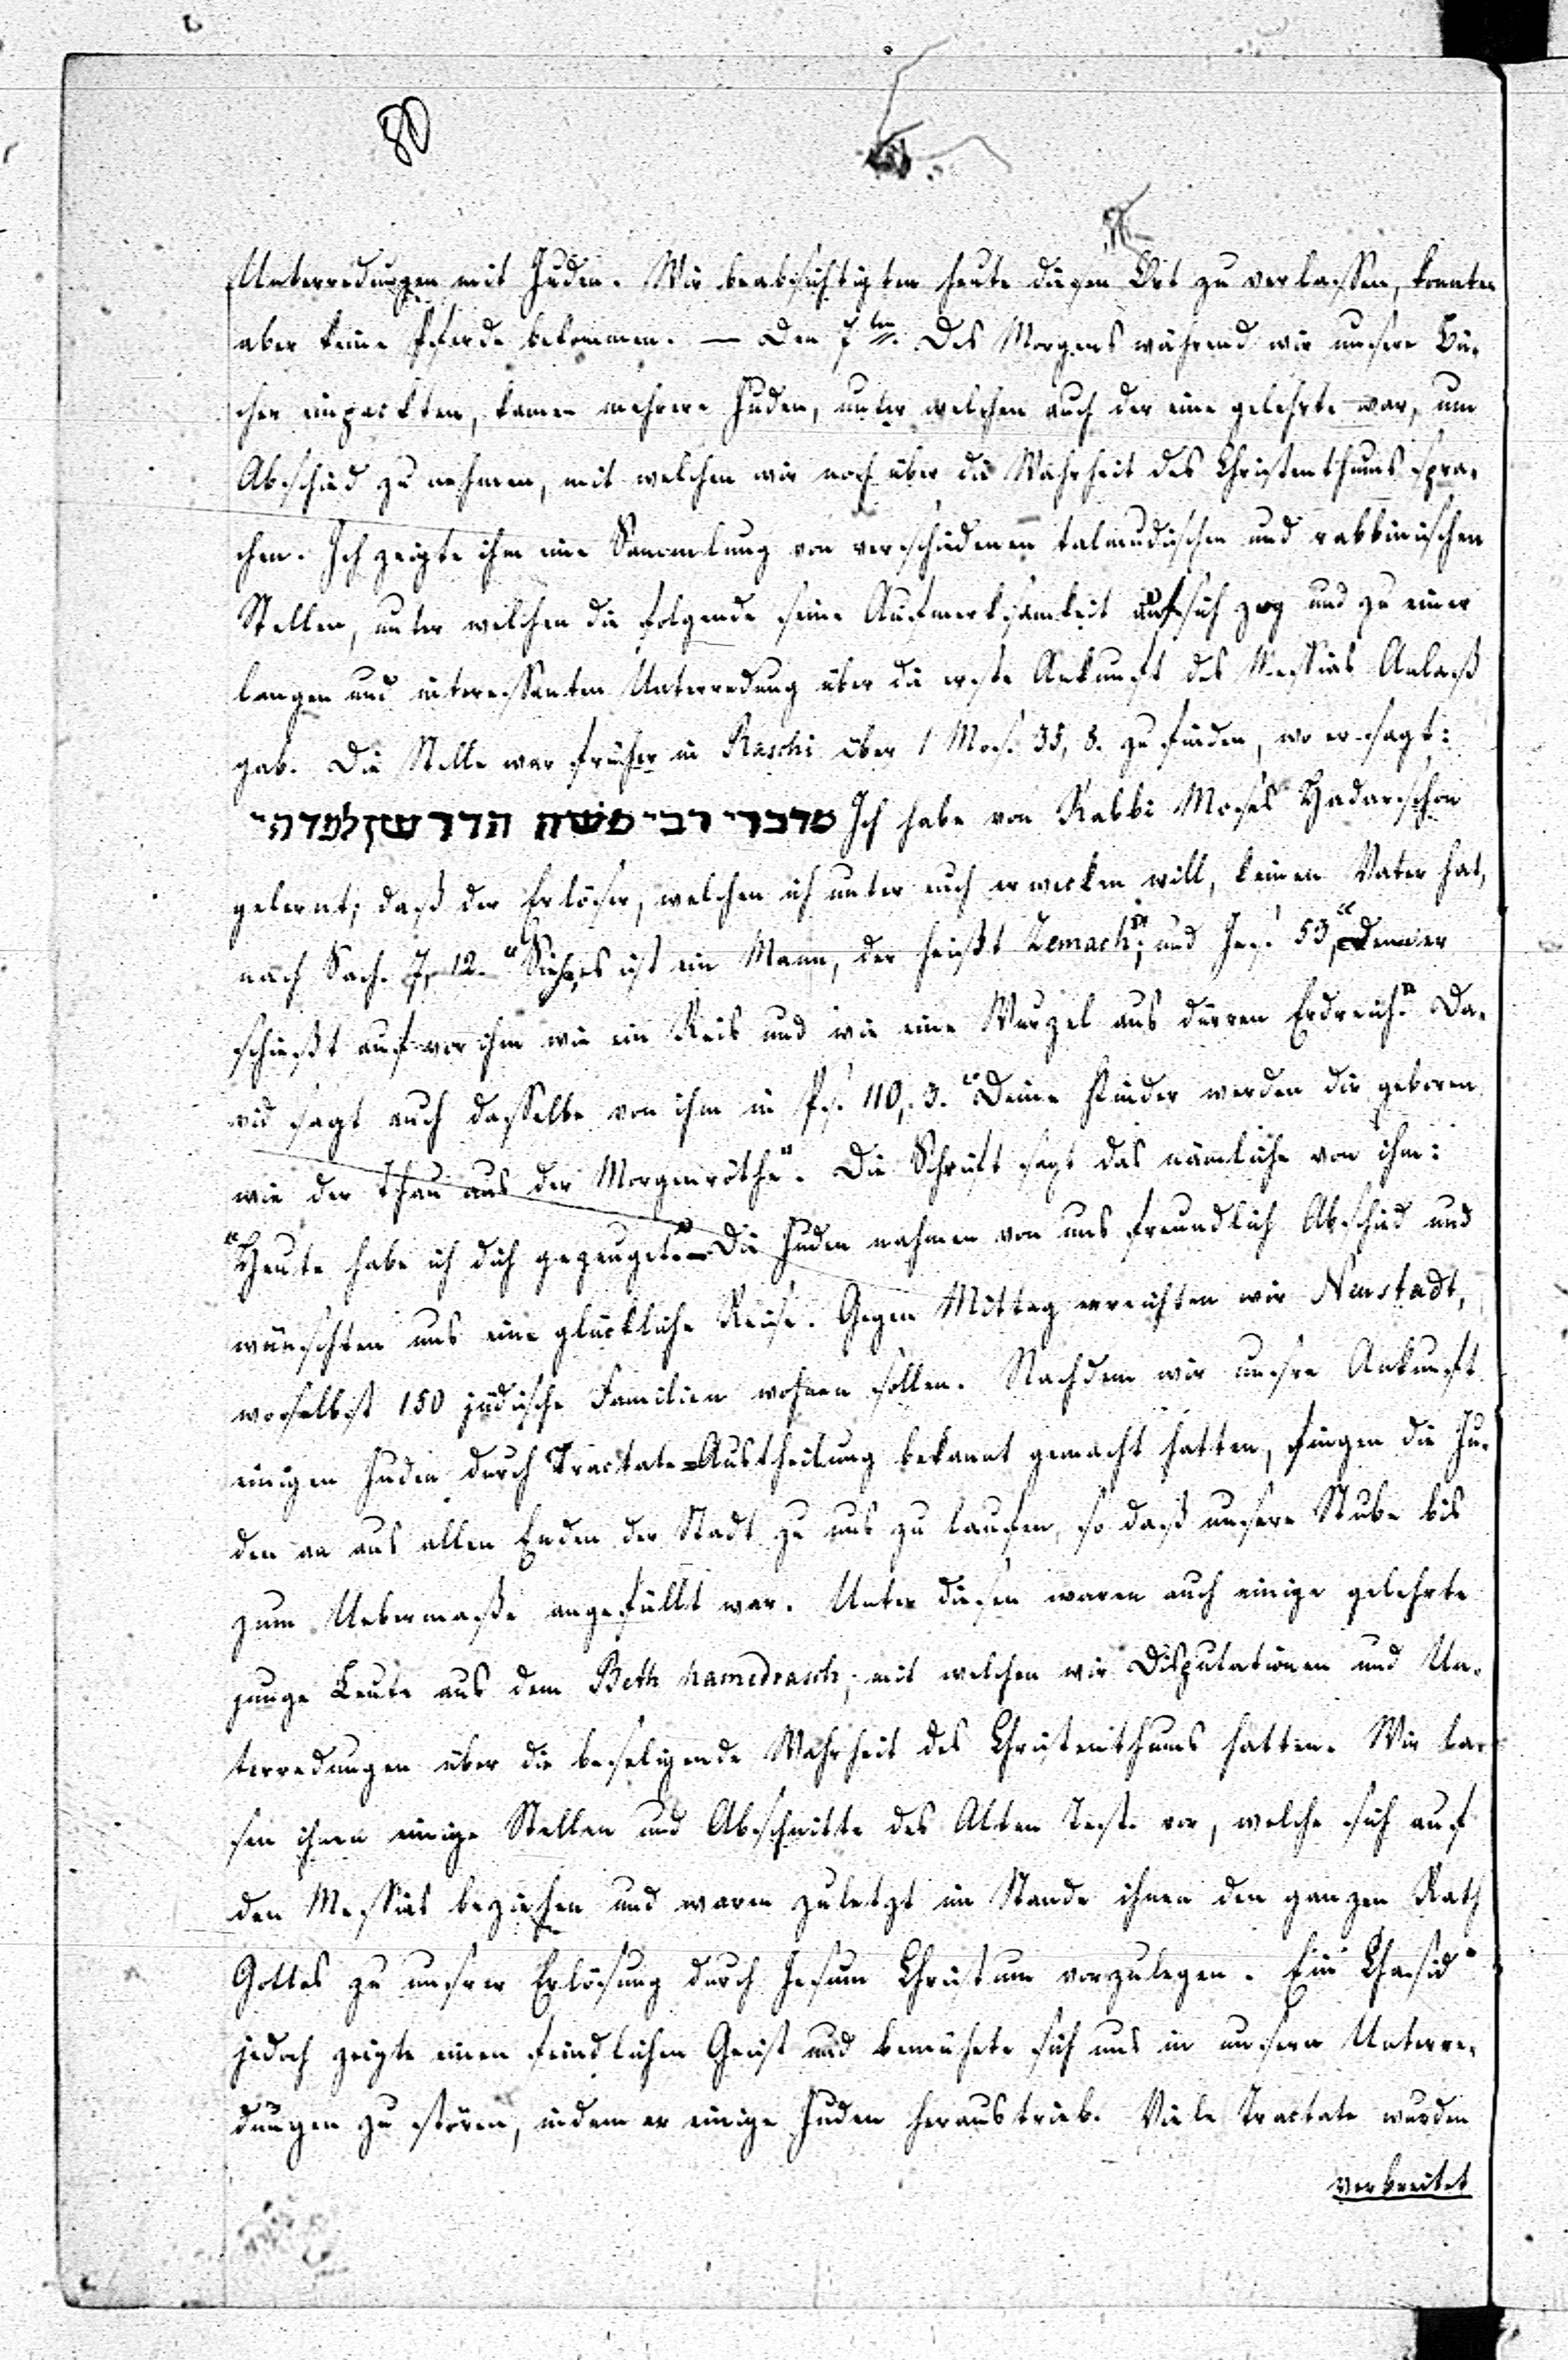 80
Unterredungen mit Juden. Wir beabsichtigten heute diesen Ort zu verlassen, konnten
aber keine Pferde bekommen. — Den 7ten. Des Morgens während wir unsere Bü-
cher einpackten, kamen mehrere Juden, unter welchen auch der eine gelehrte war, um
Abschied zu nehmen, mit welchen wir noch über die Wahrheit des Christenthums spra-
chen. Ich zeigte ihm eine Sammlung von verschiedenen talmudischen und rabbinischen
Stellen, unter welchen die folgende seine Aufmerksamkeit auf sich zog und zu einer
langen und interessanten Unterredung über die erste Ankunft des Messias Anlaß
gab. Die Stelle war früher in Raschi über 1 Mos. 35, 8. zu finden, wo er sagt:
מדברי רבי משה הדרשן למדתי Ich habe von Rabbi Moses Hadarschon
gelernt; daß der Erlöser, welchen ich unter euch erwecken will, keinen Vater hat,
nach Sach. 7, 12. "Siehe, es ist ein Mann, der heißt Zemach"; und Jes. 53, "Denn er
schießt auf vor ihm wie ein Reis und wie eine Wurzel aus dürren Erdreich." Da-
vid sagt auch dasselbe von ihm in Ps. 110, 3. "Deine Kinder werden dir geboren
wie der Thau aus der Morgenröthe". Die Schrift sagt das nämliche von ihm:
"Heute habe ich dich gezeuget." — Die Juden nahmen von uns freundlich Abschied und
wünschten uns eine glückliche Reise. Gegen Mittag erreichten wir Neustadt,
woselbst 150 jüdische Familien wohnen sollen. Nachdem wir unsre Ankunft
einigen Juden durch Tractate-Austheilung bekannt gemacht hatten, fingen die Ju-
den an aus allen Enden der Stadt zu uns zu laufen, so daß unsere Stube bis
zum Uebermaße angefüllt war. Unter diesen waren auch einige gelehrte
junge Leute aus dem Beth hamedrasch, mit welchen wir Disputationen und Un-
terredungen über die beseligende Wahrheit des Christenthums hatten. Wir la-
sen ihnen einige Stellen und Abschnitte des Alten Test. vor, welche sich auf
den Messias beziehen und waren zuletzt im Stande ihnen den ganzen Rath
Gottes zu unsrer Erlösung durch Jesum Christum vorzulegen. Ein Chasid
jedoch zeigte einen feindlichen Geist und bemühete sich uns in unsern Unterre-
dungen zu stören, indem er einige Juden heraustrieb. Viele Tractate wurden
verbreitet